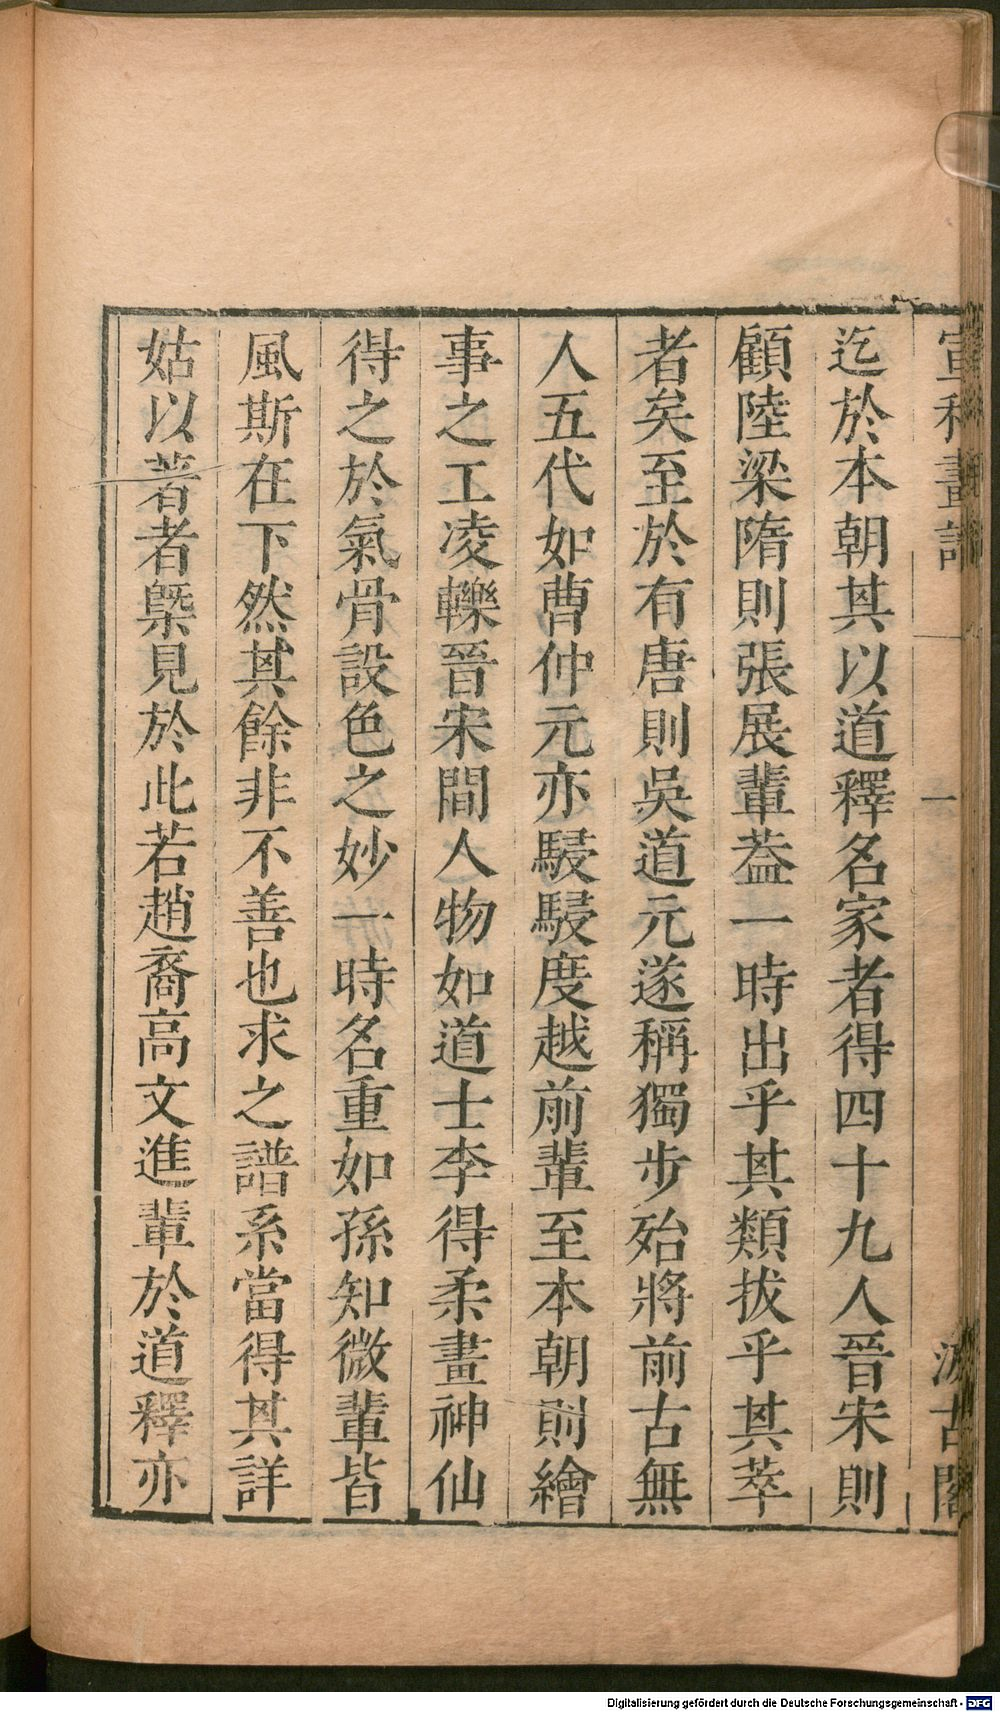 宣和畫譜 一 汲古閣
迄於本朝其以道釋名家者得四十九人晉宋則
顧陸梁隋則張展輩葢一時出乎其類拔乎其萃
者矣至於有唐則吳道元遂稱獨步殆將前古無
人五代如曹仲元亦駸駸度越前輩至本朝則繪
事之工凌轢晉宋間人物如道士李得柔畫神仙
得之於氣骨設色之妙一時名重如孫知微輩皆
風斯在下然其餘非不善也求之譜系當得其詳
姑以著者槩見於此若趙裔高文進輩於道釋亦
Digitalisierung gefördert durch die Deutsche Forschungsgemeinschaft - DFG